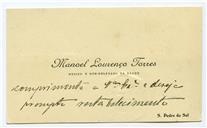 Manoel Lourenço Torres
MEDICO E SUB-DELEGADO DE SAUDE
comprimenta a V. Ex.ª e deseja
prompto restabelecimento
S. Pedro do Sul